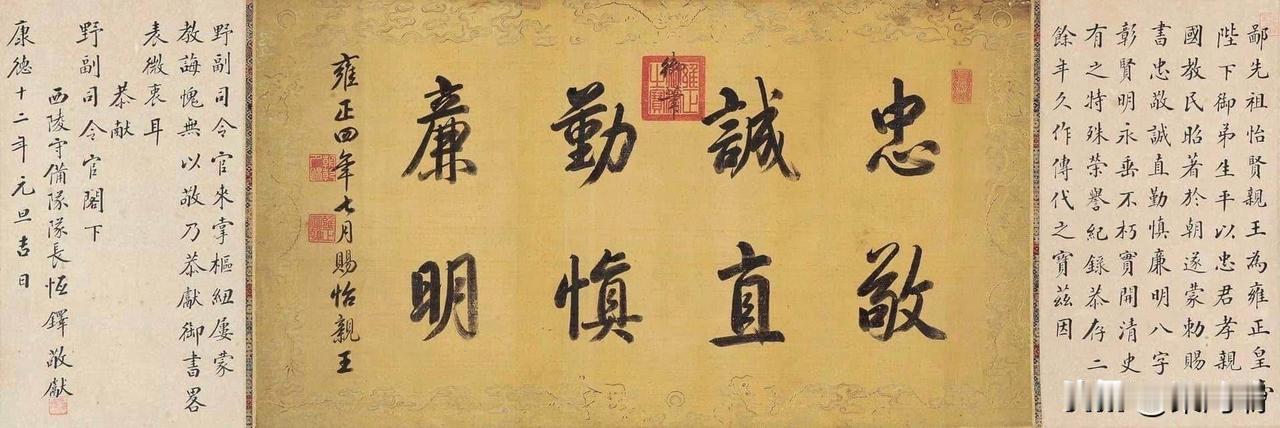 鄙先祖怡賢親王為雍正皇
陛下御弟生平以忠君孝親
國教民昭著於朝遂蒙勅賜
書忠敬誠直勤慎廉明八字
彰賢明永垂不朽實開清史
有之特殊榮譽紀錄恭存二
餘年久作傳代之寶茲因
忠敬
誠直
御筆
勤慎
廉明
雍正四年七月賜怡親王
野副司令官來掌樞紐屢蒙
教誨愧無以敬乃恭獻御書畧
表微衷耳
恭献
野副司令官閣下
西陵守備隊隊長恆鐸敬獻
康德十二年元旦吉日